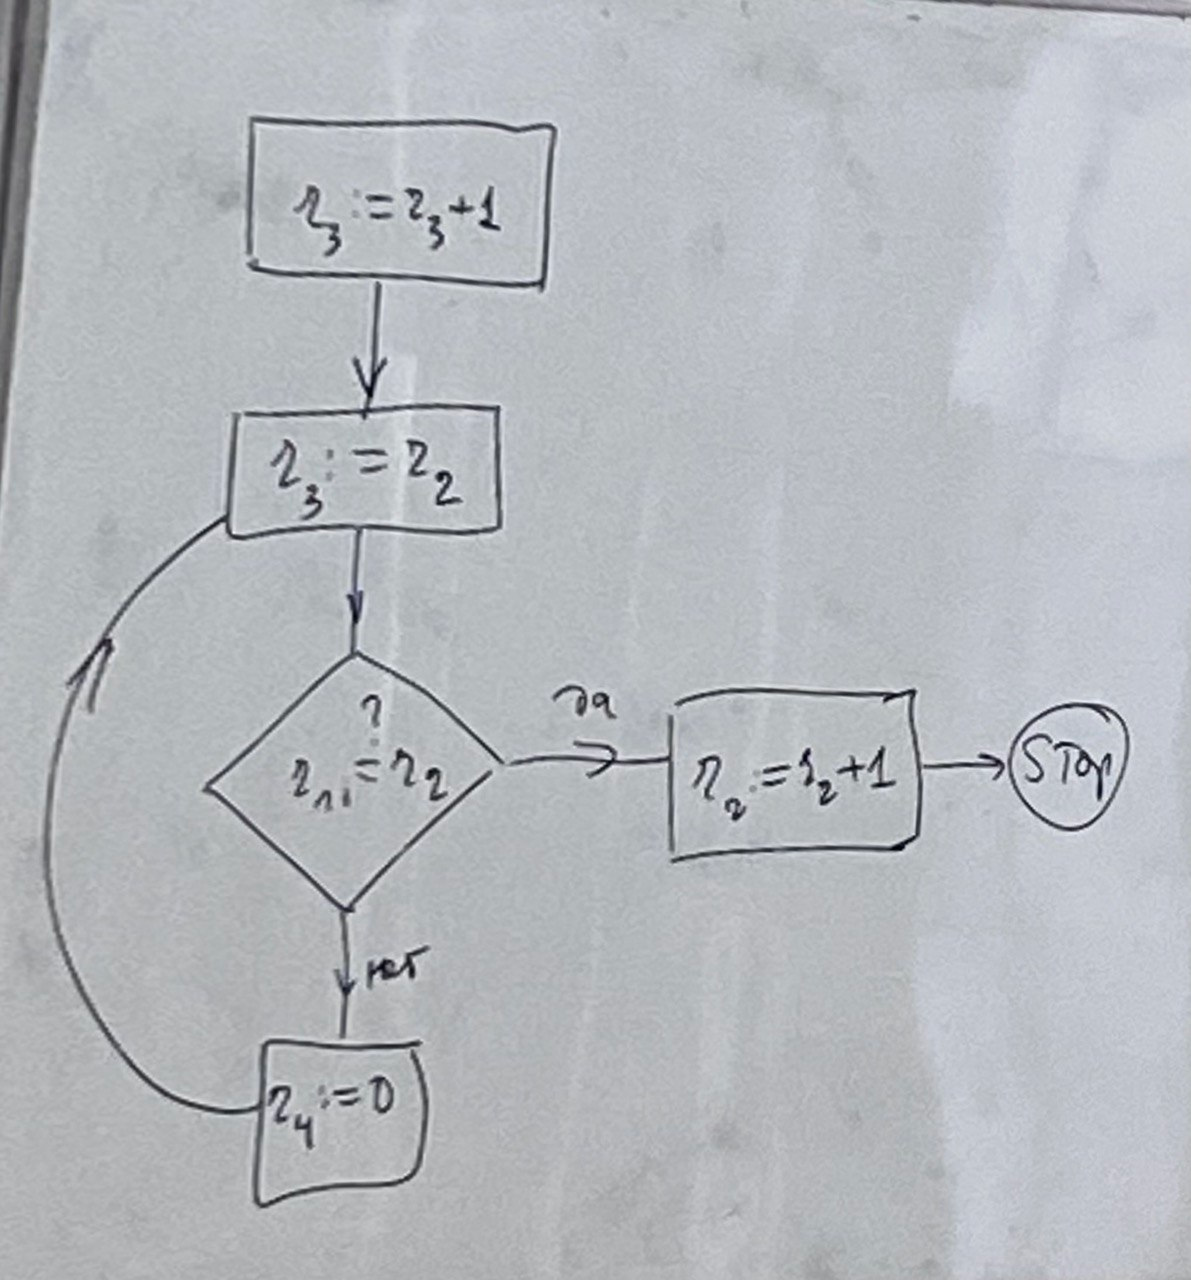 r₃ := r₃+1
r₃ := r₂
?
r₁ = r₂
да
r₂ := r₂+1
STOP
нет
r₄ := 0